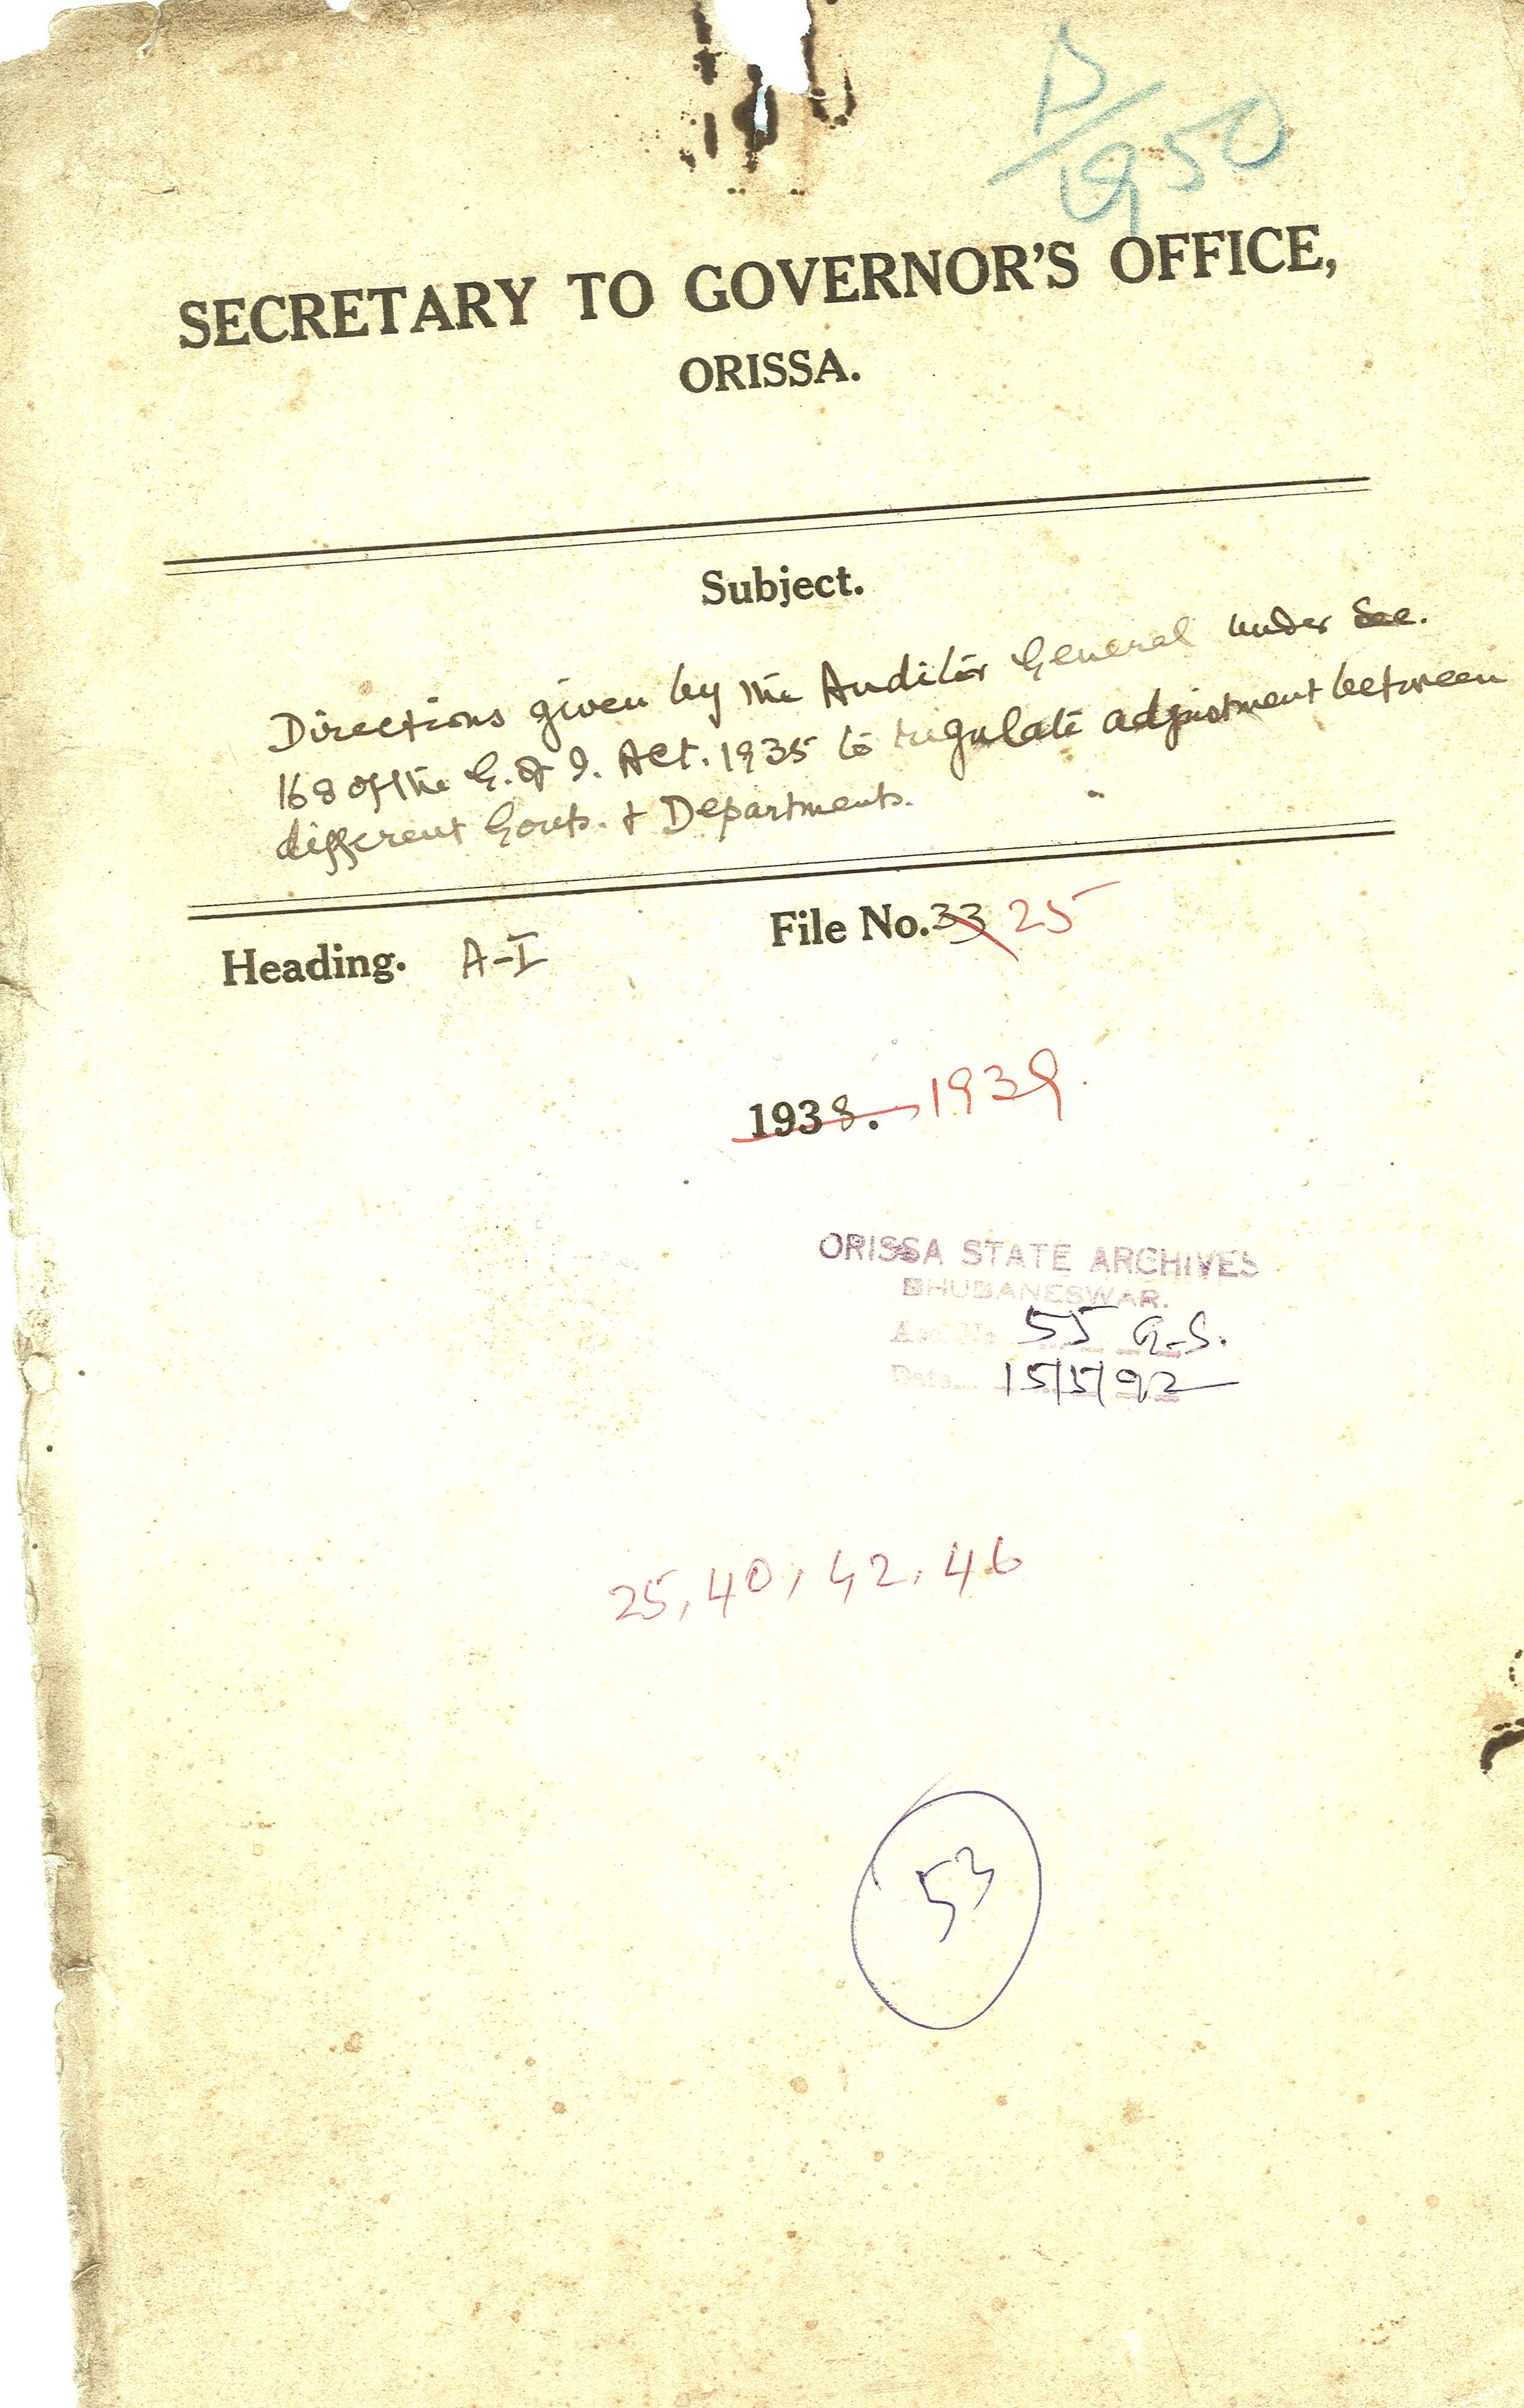 SECRETARY TO GOVERNOR'S OFFICE,
ORISSA.
Subject.
Directions given by the Auditor General under Sec.
168 of the G. of I. Act. 1935 to regulate adjustment between
different Govts. & Departments.
Heading. A-I File No. 33 25
1938. 1939.
ORISSA STATE ARCHIVES
BHUBANESWAR.
55 G.S.
Date 15/5/92
25, 40, 42, 46
53